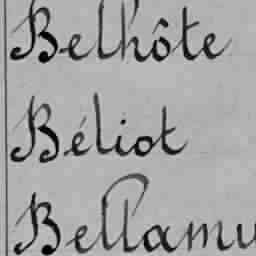 Belhôte
Béliot
Bellamu